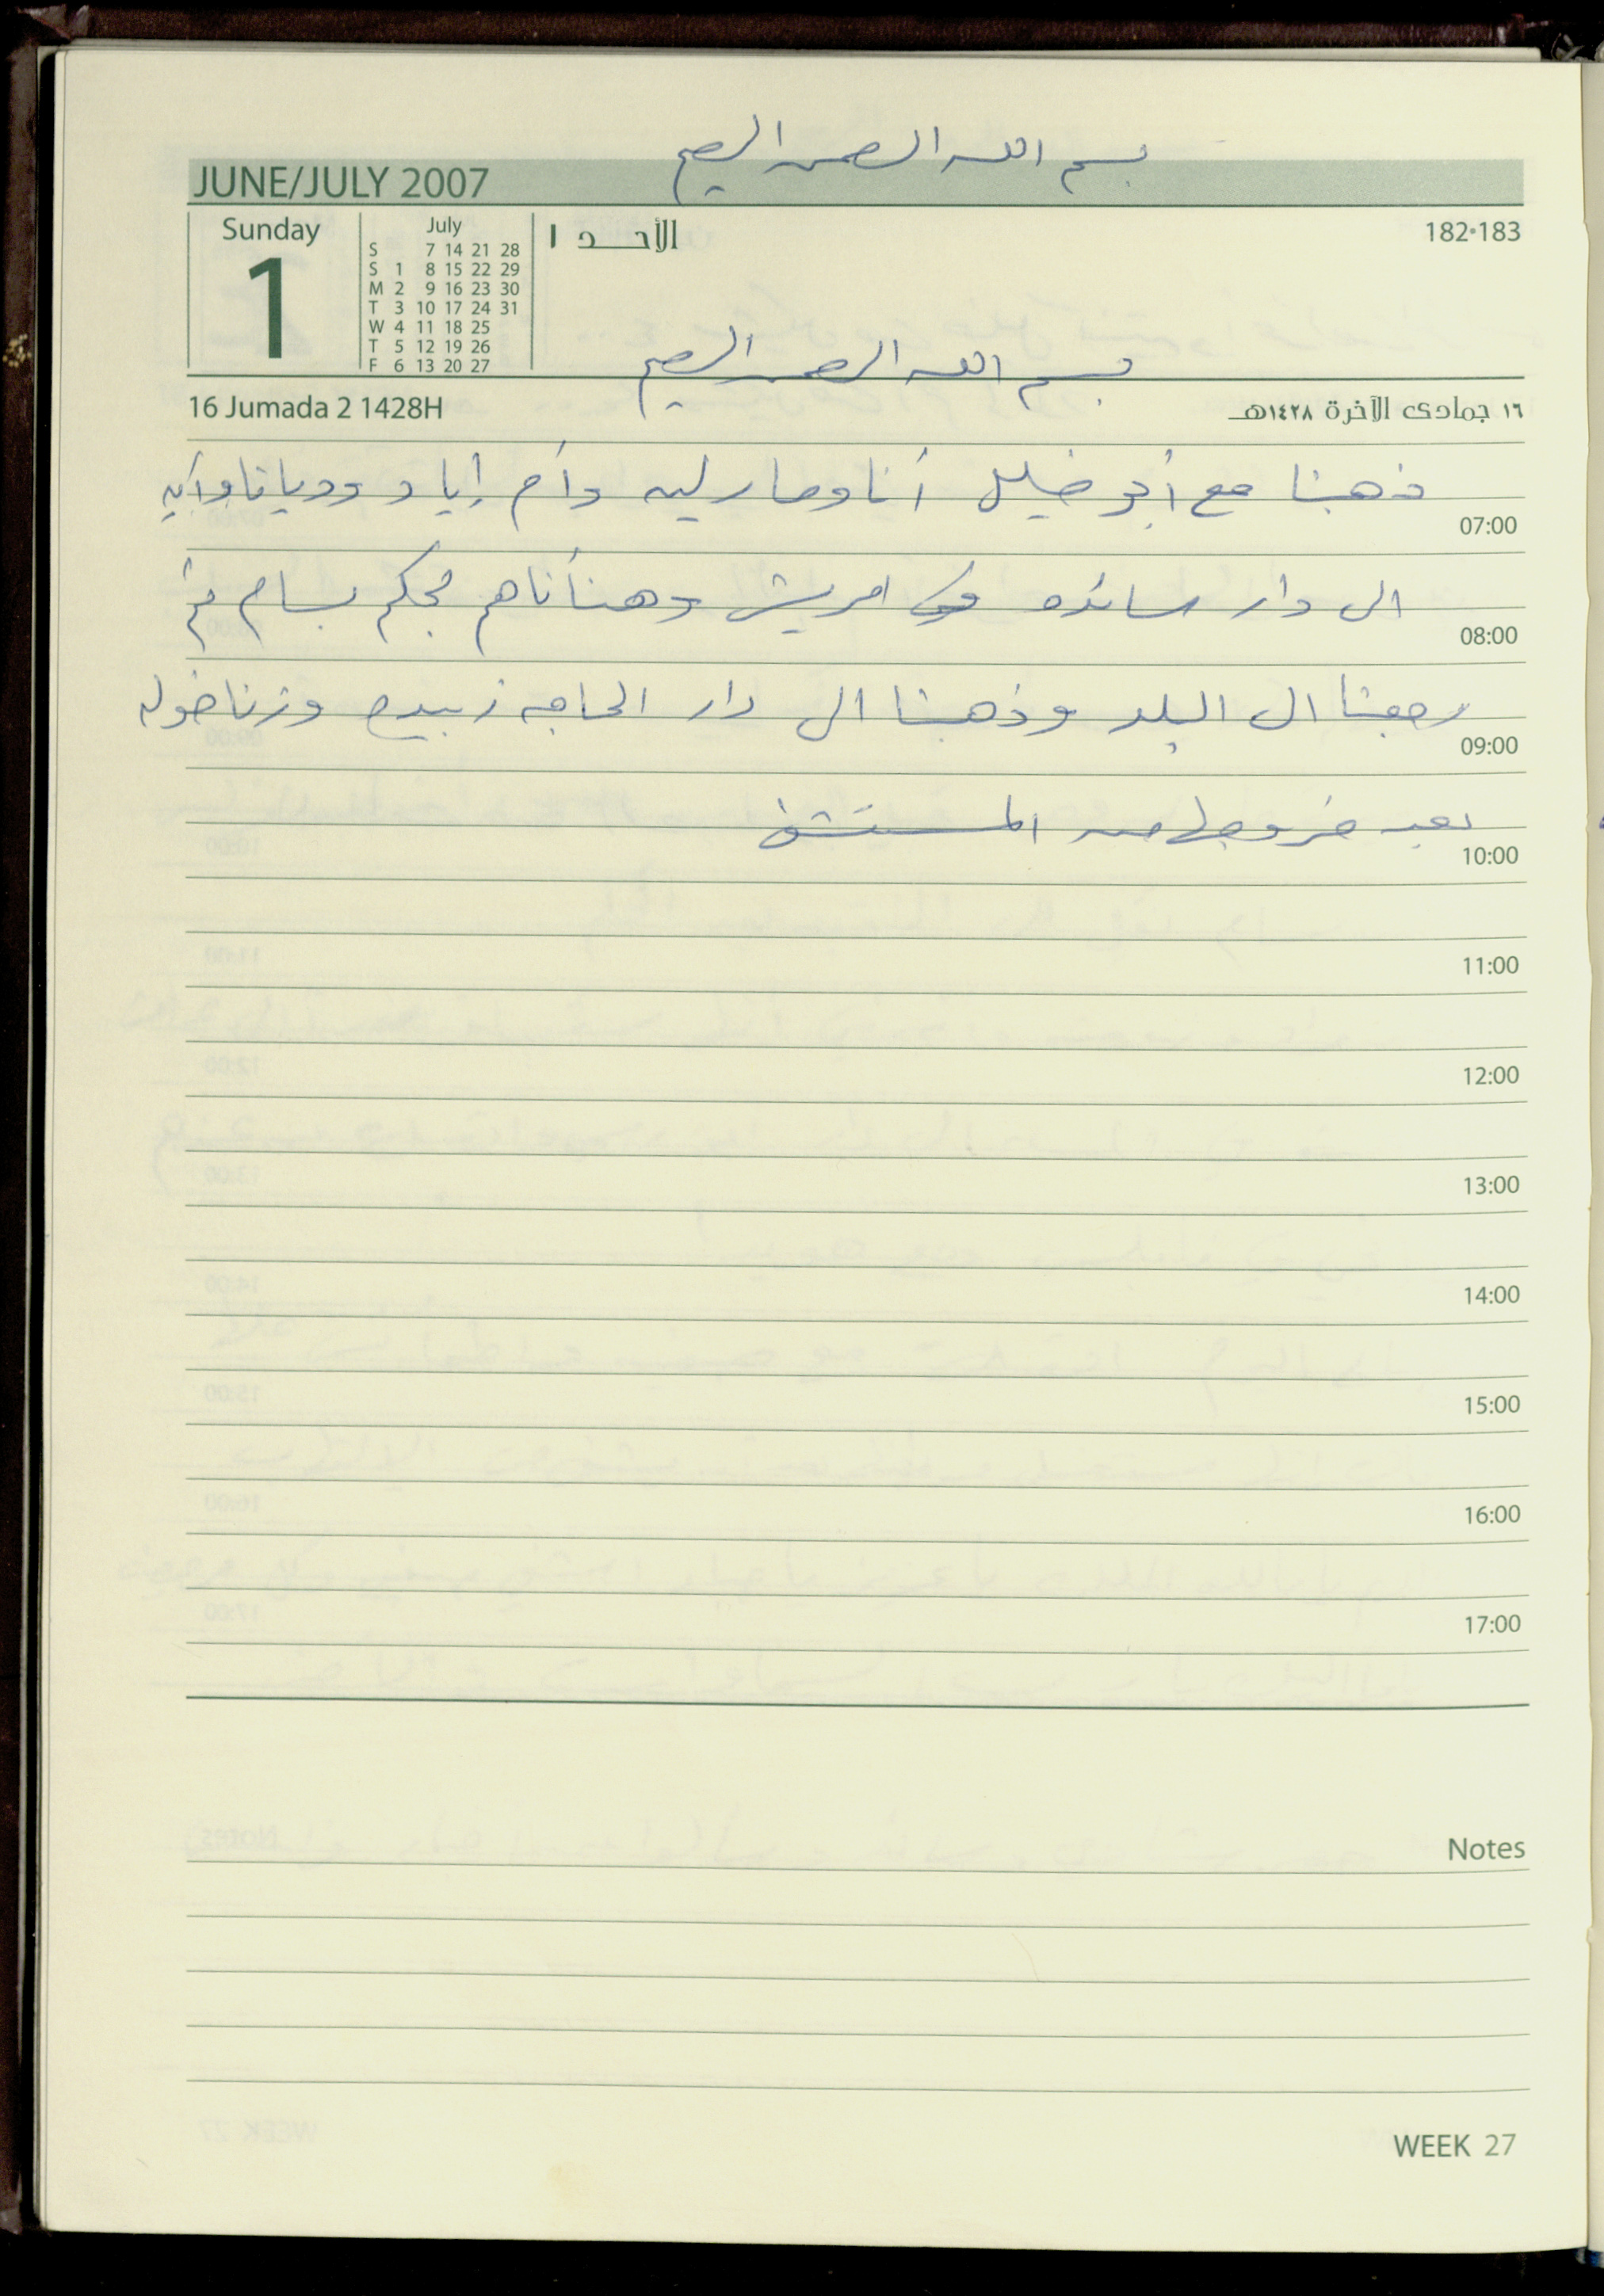 بسم الله الرحمن الرحيم
JUNE/JULY 2007
Sunday
1
July
S 7 14 21 28
S 1 8 15 22 29
M 2 9 16 23 30
T 3 10 17 24 31
W 4 11 18 25
T 5 12 19 26
F 6 13 20 27
الأحد ١
182•183
بسم الله الرحمن الرحيم
16 Jumada 2 1428H
١٦ جمادى الآخرة ١٤٢٨هـ
ذهبنا مع أبو خليل أنا ومارليه وأم إياد وديانا وآيه
07:00
الى دار سائده في امريش وهنأناهم بسام ثم
08:00
رجعنا الى البلد وذهبنا الى دار الحاجه زبيده وزرنا خوله
09:00
بعد خروجها من المستشفى
10:00
11:00
12:00
13:00
14:00
15:00
16:00
17:00
Notes
WEEK 27